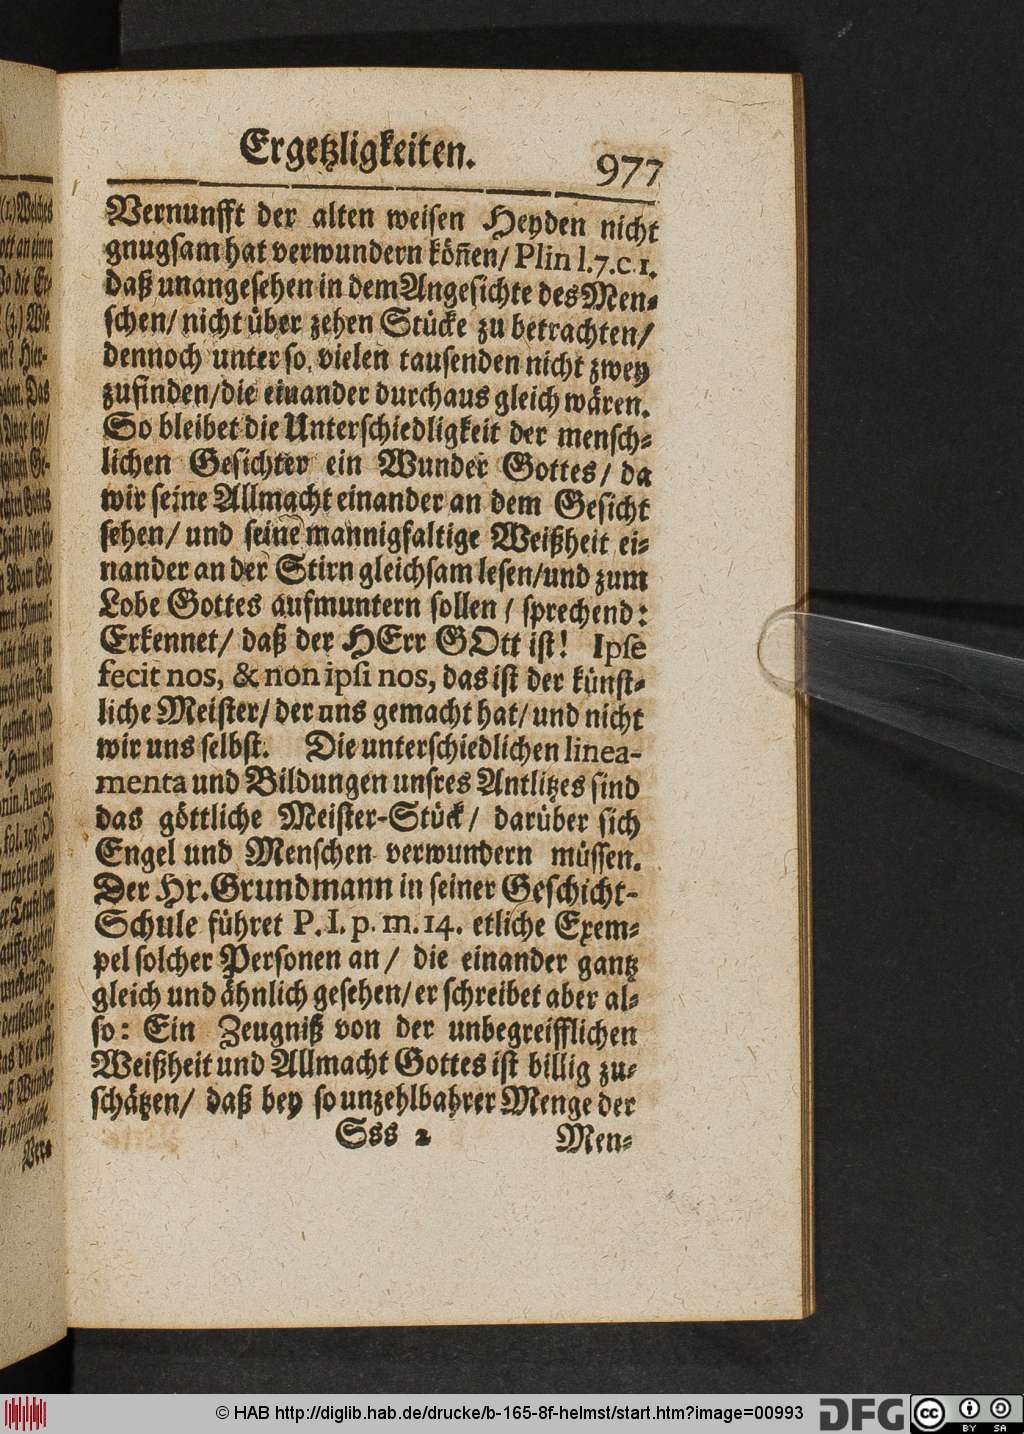 Ergetzligkeiten. 977
Vernunfft der alten weisen Heyden nicht
gnugsam hat verwundern köñen/ Plin l.7.c.1.
daß unangesehen in dem Angesichte des Men-
schen/ nicht über zehen Stücke zu betrachten/
dennoch unter so vielen tausenden nicht zwey
zufinden/die einander durchaus gleich wären.
So bleibet die Unterschiedligkeit der mensch-
lichen Gesichter ein Wunder Gottes/ da
wir seine Allmacht einander an dem Gesicht
sehen/ und seine mannigfaltige Weißheit ei-
nander an der Stirn gleichsam lesen/und zum
Lobe Gottes aufmuntern sollen / sprechend:
Erkennet/ daß der HErr GOtt ist! Ipse
fecit nos, & non ipsi nos, das ist der künst-
liche Meister/ der uns gemacht hat/ und nicht
wir uns selbst. Die unterschiedlichen linea-
menta und Bildungen unsres Antlitzes sind
das göttliche Meister-Stück/ darüber sich
Engel und Menschen verwundern müssen.
Der Hr. Grundmann in seiner Geschicht-
Schule führet P. I. p. m. 14. etliche Exem-
pel solcher Personen an/ die einander gantz
gleich und ähnlich gesehen/ er schreibet aber al-
so: Ein Zeugniß von der unbegreifflichen
Weißheit und Allmacht Gottes ist billig zu-
schätzen/ daß bey so unzehlbahrer Menge der
Sss 2 Men-
© HAB http://diglib.hab.de/drucke/b-165-8f-helmst/start.htm?image=00993
DFG
cc BY SA